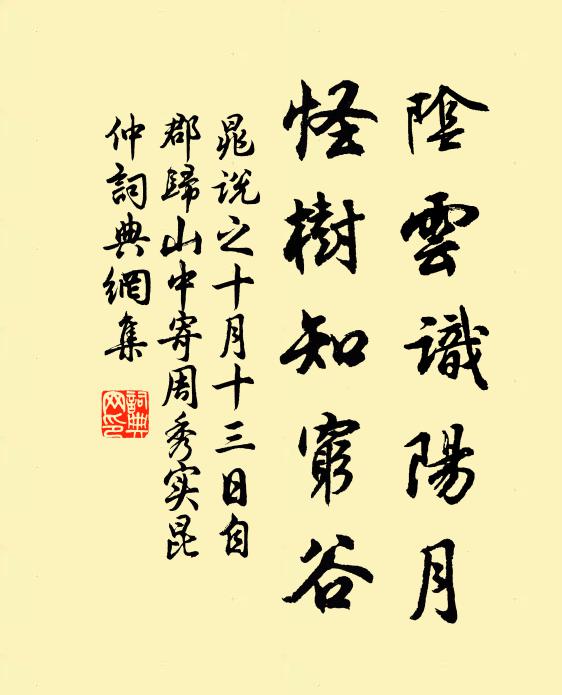 陰雲識陽月
怪樹知窮谷
晁説之十月十三日自
郡歸山中寄周秀实昆
仲詞典網集
詞典网印